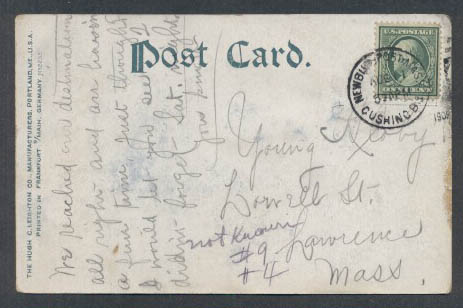 THE HUGH C. LEIGHTON CO., MANUFACTURERS, PORTLAND, ME., U.S.A.
PRINTED IN FRANKFURT a/MAIN, GERMANY
Post Card.
We reached our destination
all right and are having
a fine time. Just thought
I would let you see I
didn't forget Sat. night.
Your
U.S. POSTAGE
NEWBURYPORT, MASS.
CUSHING
1908
Young
Lowell St.
Lawrence
Mass
not known
#9
#4